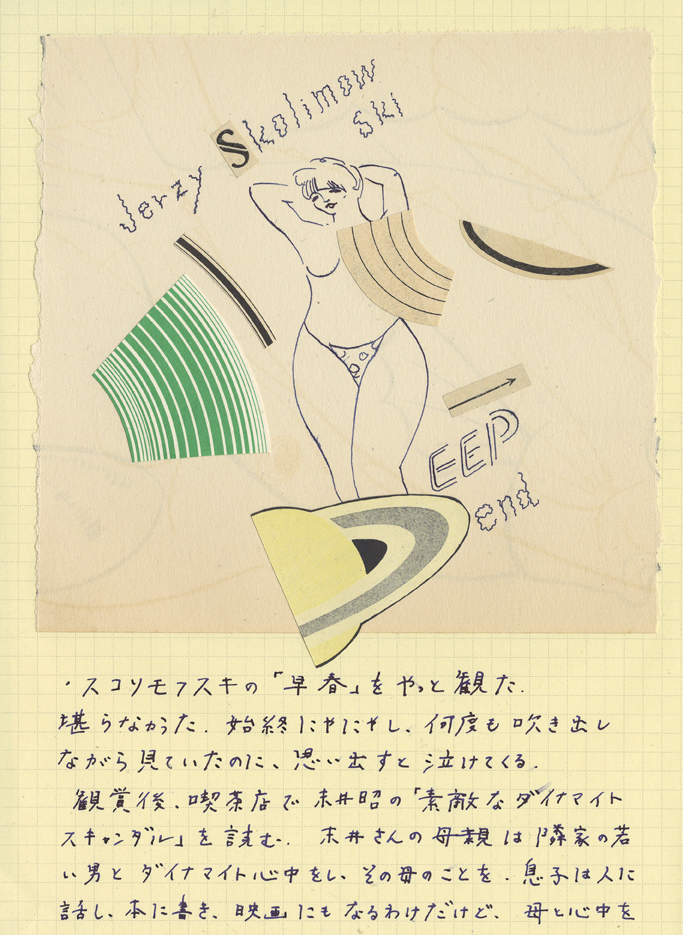 Jerzy Skolimow
ski
EEP
end
・スコリモフスキの「早春」をやっと観た.
堪らなかった. 始終にやにやし、何度も吹き出し
ながら見ていたのに、思い出すと泣けてくる.
観賞後、喫茶店で末井昭の「素敵なダイナマイト
スキャンダル」を読む. 末井さんの母親は隣家の若
い男とダイナマイト心中をし、その母のことを. 息子は人に
話し、本に書き、映画にもなるわけだけど、母と心中を